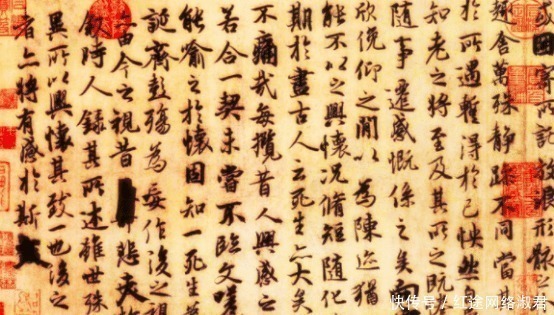 或因寄所託放浪形骸之
趣舍萬殊靜躁不同當
於所遇蹔得於己怏然自
知老之將至及其所之既
隨事遷感慨係之矣向
欣俛仰之間以為陳迹猶
能不以之興懷況脩短隨化
期於盡古人云死生亦大矣
不痛哉每攬昔人興感之
若合一契未嘗不臨文嗟
能喻之於懷固知一死生
誕齊彭殤為妄作後之視
亦由今之視昔悲夫
敘時人錄其所述雖世殊
異所以興懷其致一也後之
者亦將有感於斯文
快传号/红途网络淑君